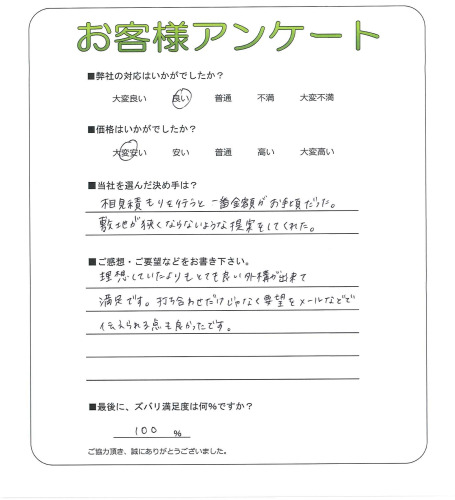 お客様アンケート
■弊社の対応はいかがでしたか？
大変良い　良い　普通　不満　大変不満
■価格はいかがでしたか？
大変安い　安い　普通　高い　大変高い
■当社を選んだ決め手は？
相見積もりを行うと一番金額がお手頃だった。
敷地が狭くならないような提案をしてくれた。
■ご感想・ご要望などをお書き下さい。
理想していたよりもとても良い外構が出来て
満足です。打ち合わせだけじゃなく要望をメールなどで
伝えられる点も良かったです。
■最後に、ズバリ満足度は何％ですか？
100 ％
ご協力頂き、誠にありがとうございました。